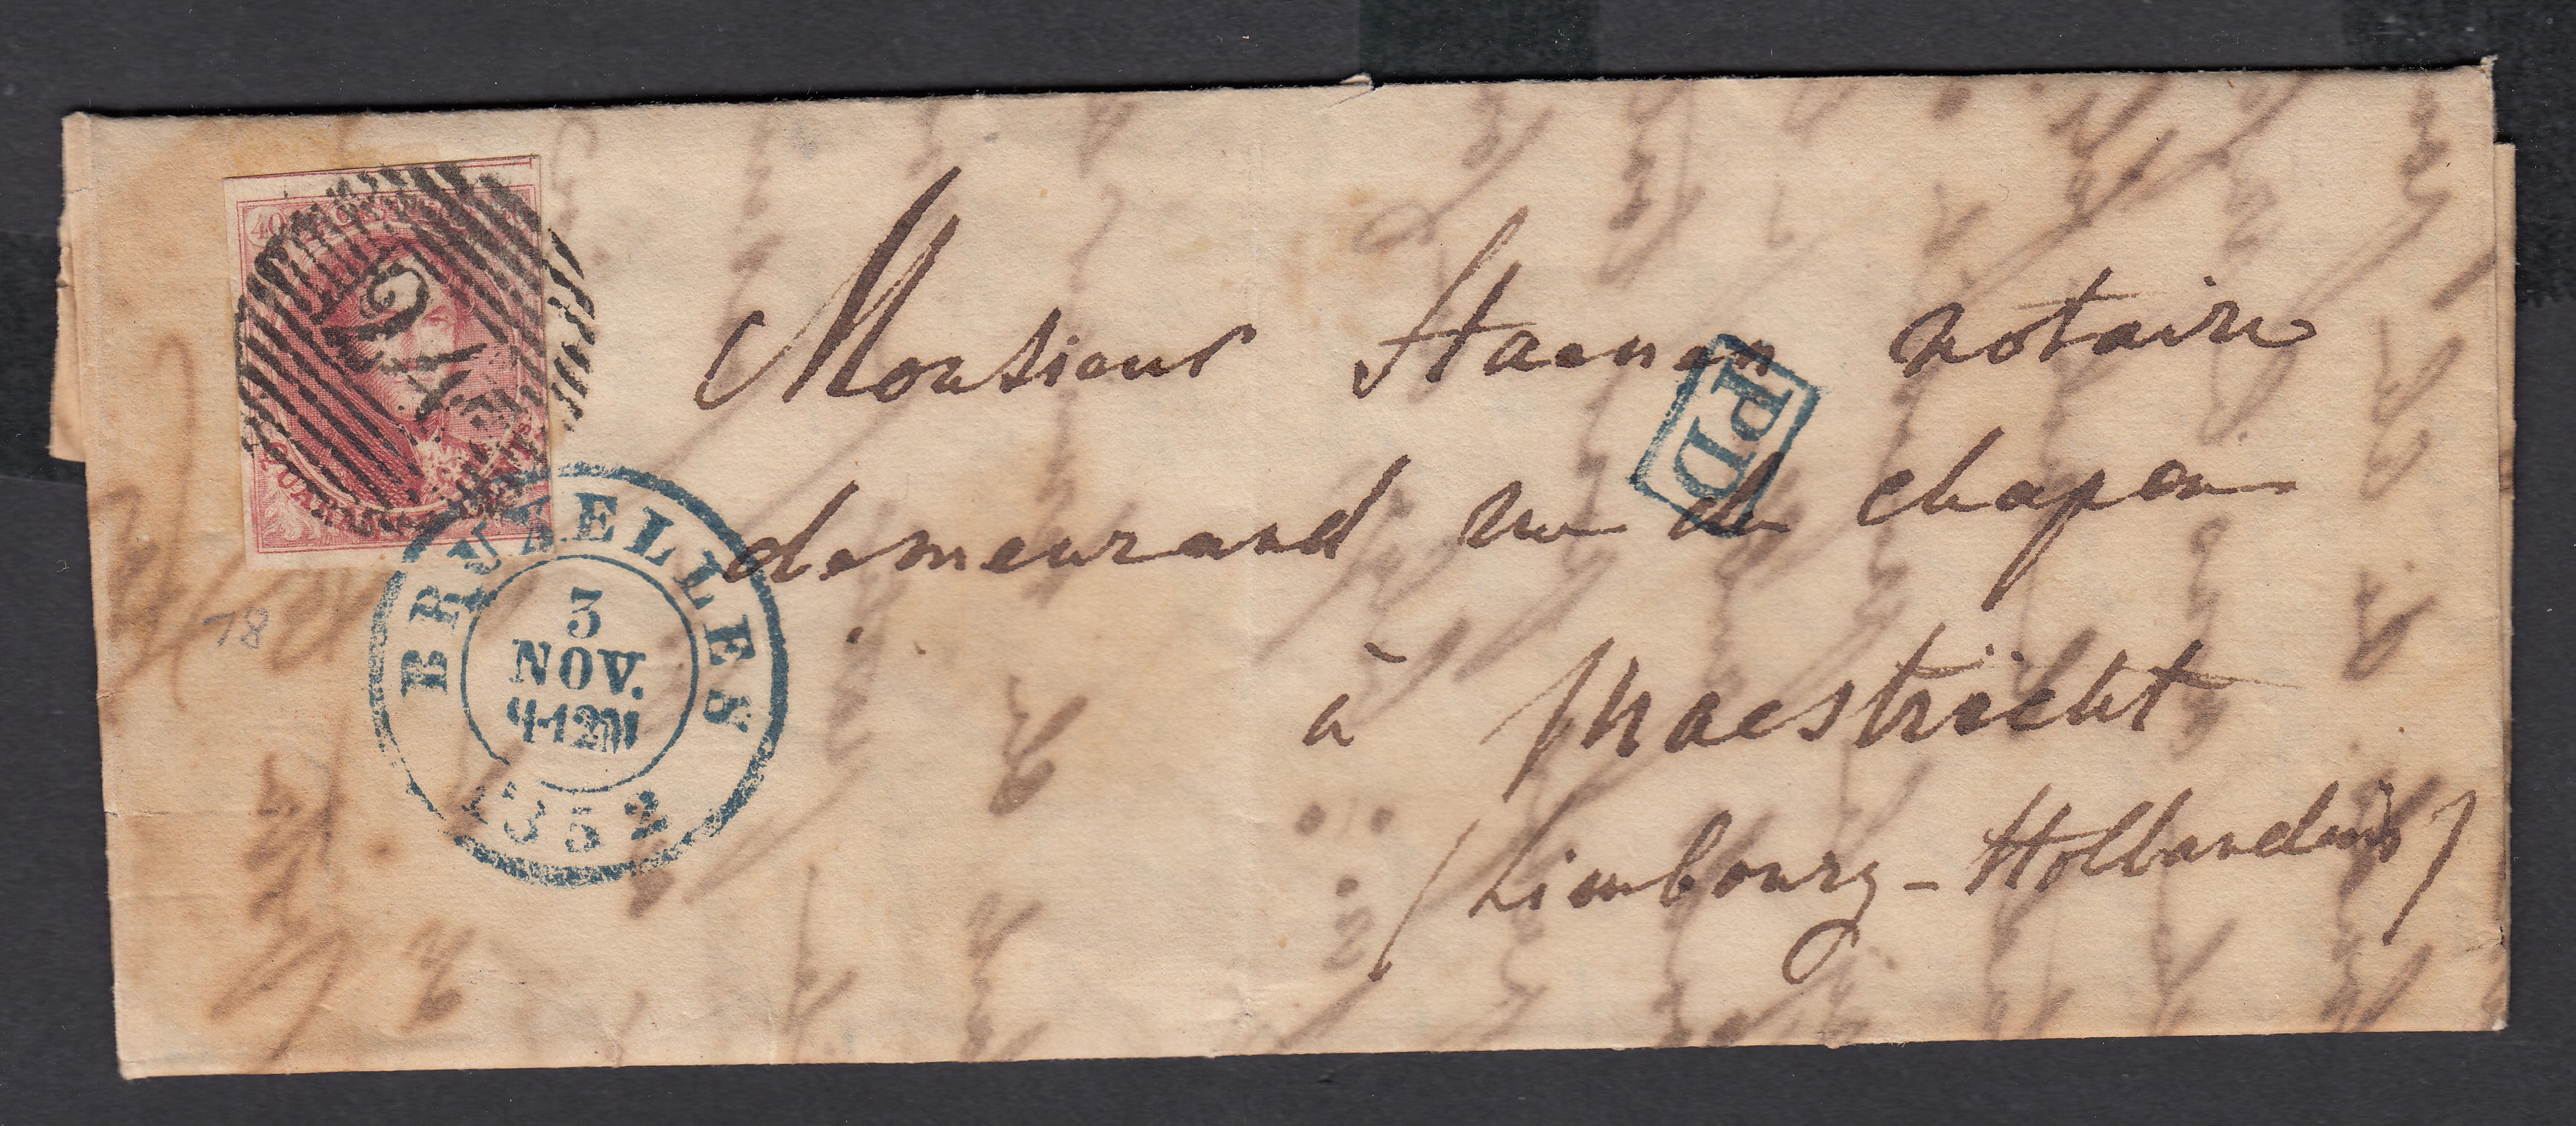 40
24
QUARANTE CENTIMES
BRUXELLES
3
NOV.
9-12M
1852
PD
78
Monsieur Staenen notaire
demeurand rue de chapon
à Maestricht
(Limbourg-Hollandais)